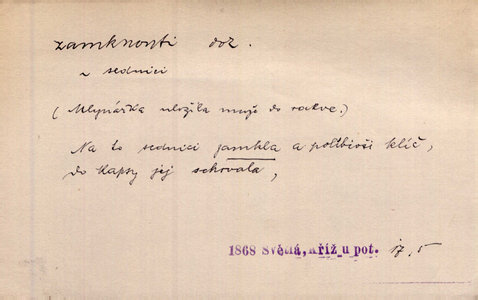 zamknouti doz.
~ sednici
(Mlynářka uložila muže do rakve.)
Na to sednici zamkla a políbivši klíč,
do kapsy jej schovala,
1868 Světlá, Kříž u pot. 17, 5